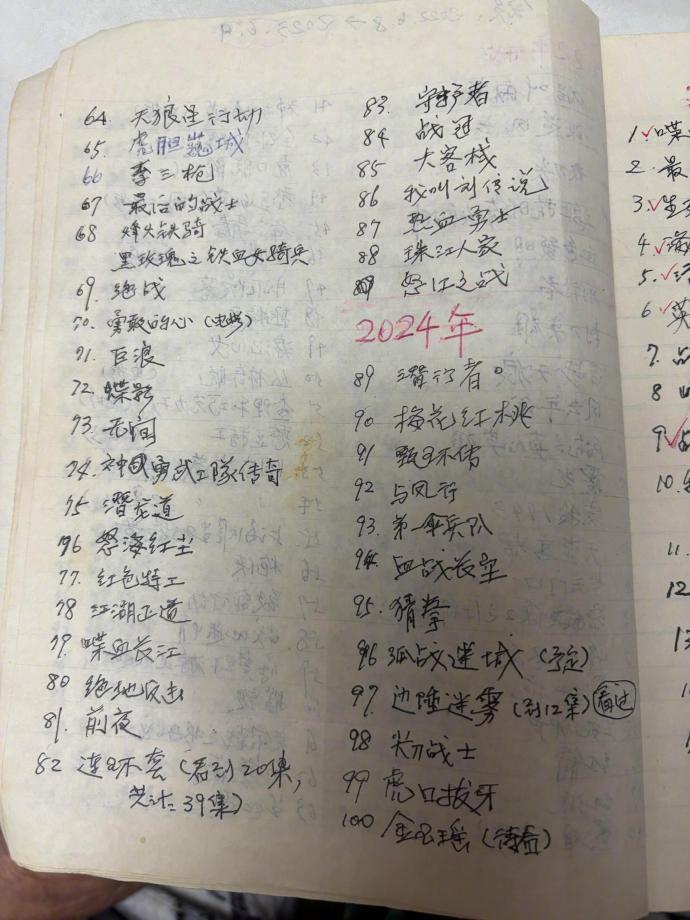 64. 天狼星行动
65. 虎胆巍城
66 李三枪
67 最后的战士
68 烽火铁骑
黑玫瑰之铁血女骑兵
69. 绝战
70. 勇敢的心(电)
71. 巨浪
72. 蝶影
73. 无间
74. 神武工隊传奇
75 潜龙道
76 怒海红尘
77. 红色特工
78 江湖正道
79. 喋血长江
80 绝地反击
81. 前夜
82 连环套(看到20集,
共计39集)
83. 守护者
84 战冠
85 大客栈
86 我叫刘传说
87 热血勇士
88 珠江人家
89 怒江之战
2024年
89 潜行者。
90 梅花红桃
91 甄环传
92 与凤行
93. 第一伞兵队
94. 血战长空
95. 猜拳
96 孤战迷城 (予定)
97. 边陲迷雾(到12集) 看过
98 尖刀战士
99 虎口拔牙
100 金瑶(待看)
1. ✓喋
2. 最
3. ✓生
4 ✓海
5. ✓
6 ✓英
7.
8
9 ✓
10.
11.
12